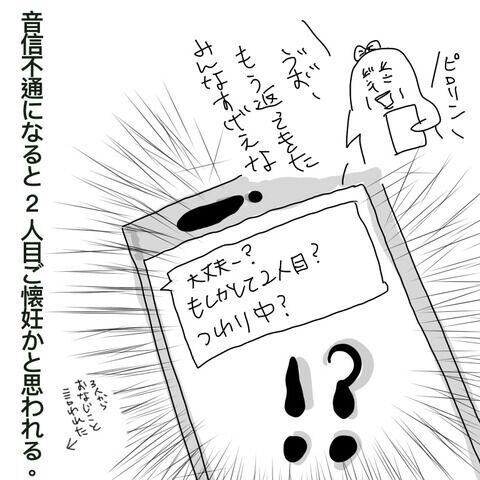 ピロリン
うお、
もう返ってきた
みんなすげえな
大丈夫ー?
もしかして2人目?
つわり中?
!?
3人から
おなじこと
言われた
音信不通になると2人目ご懐妊かと思われる。